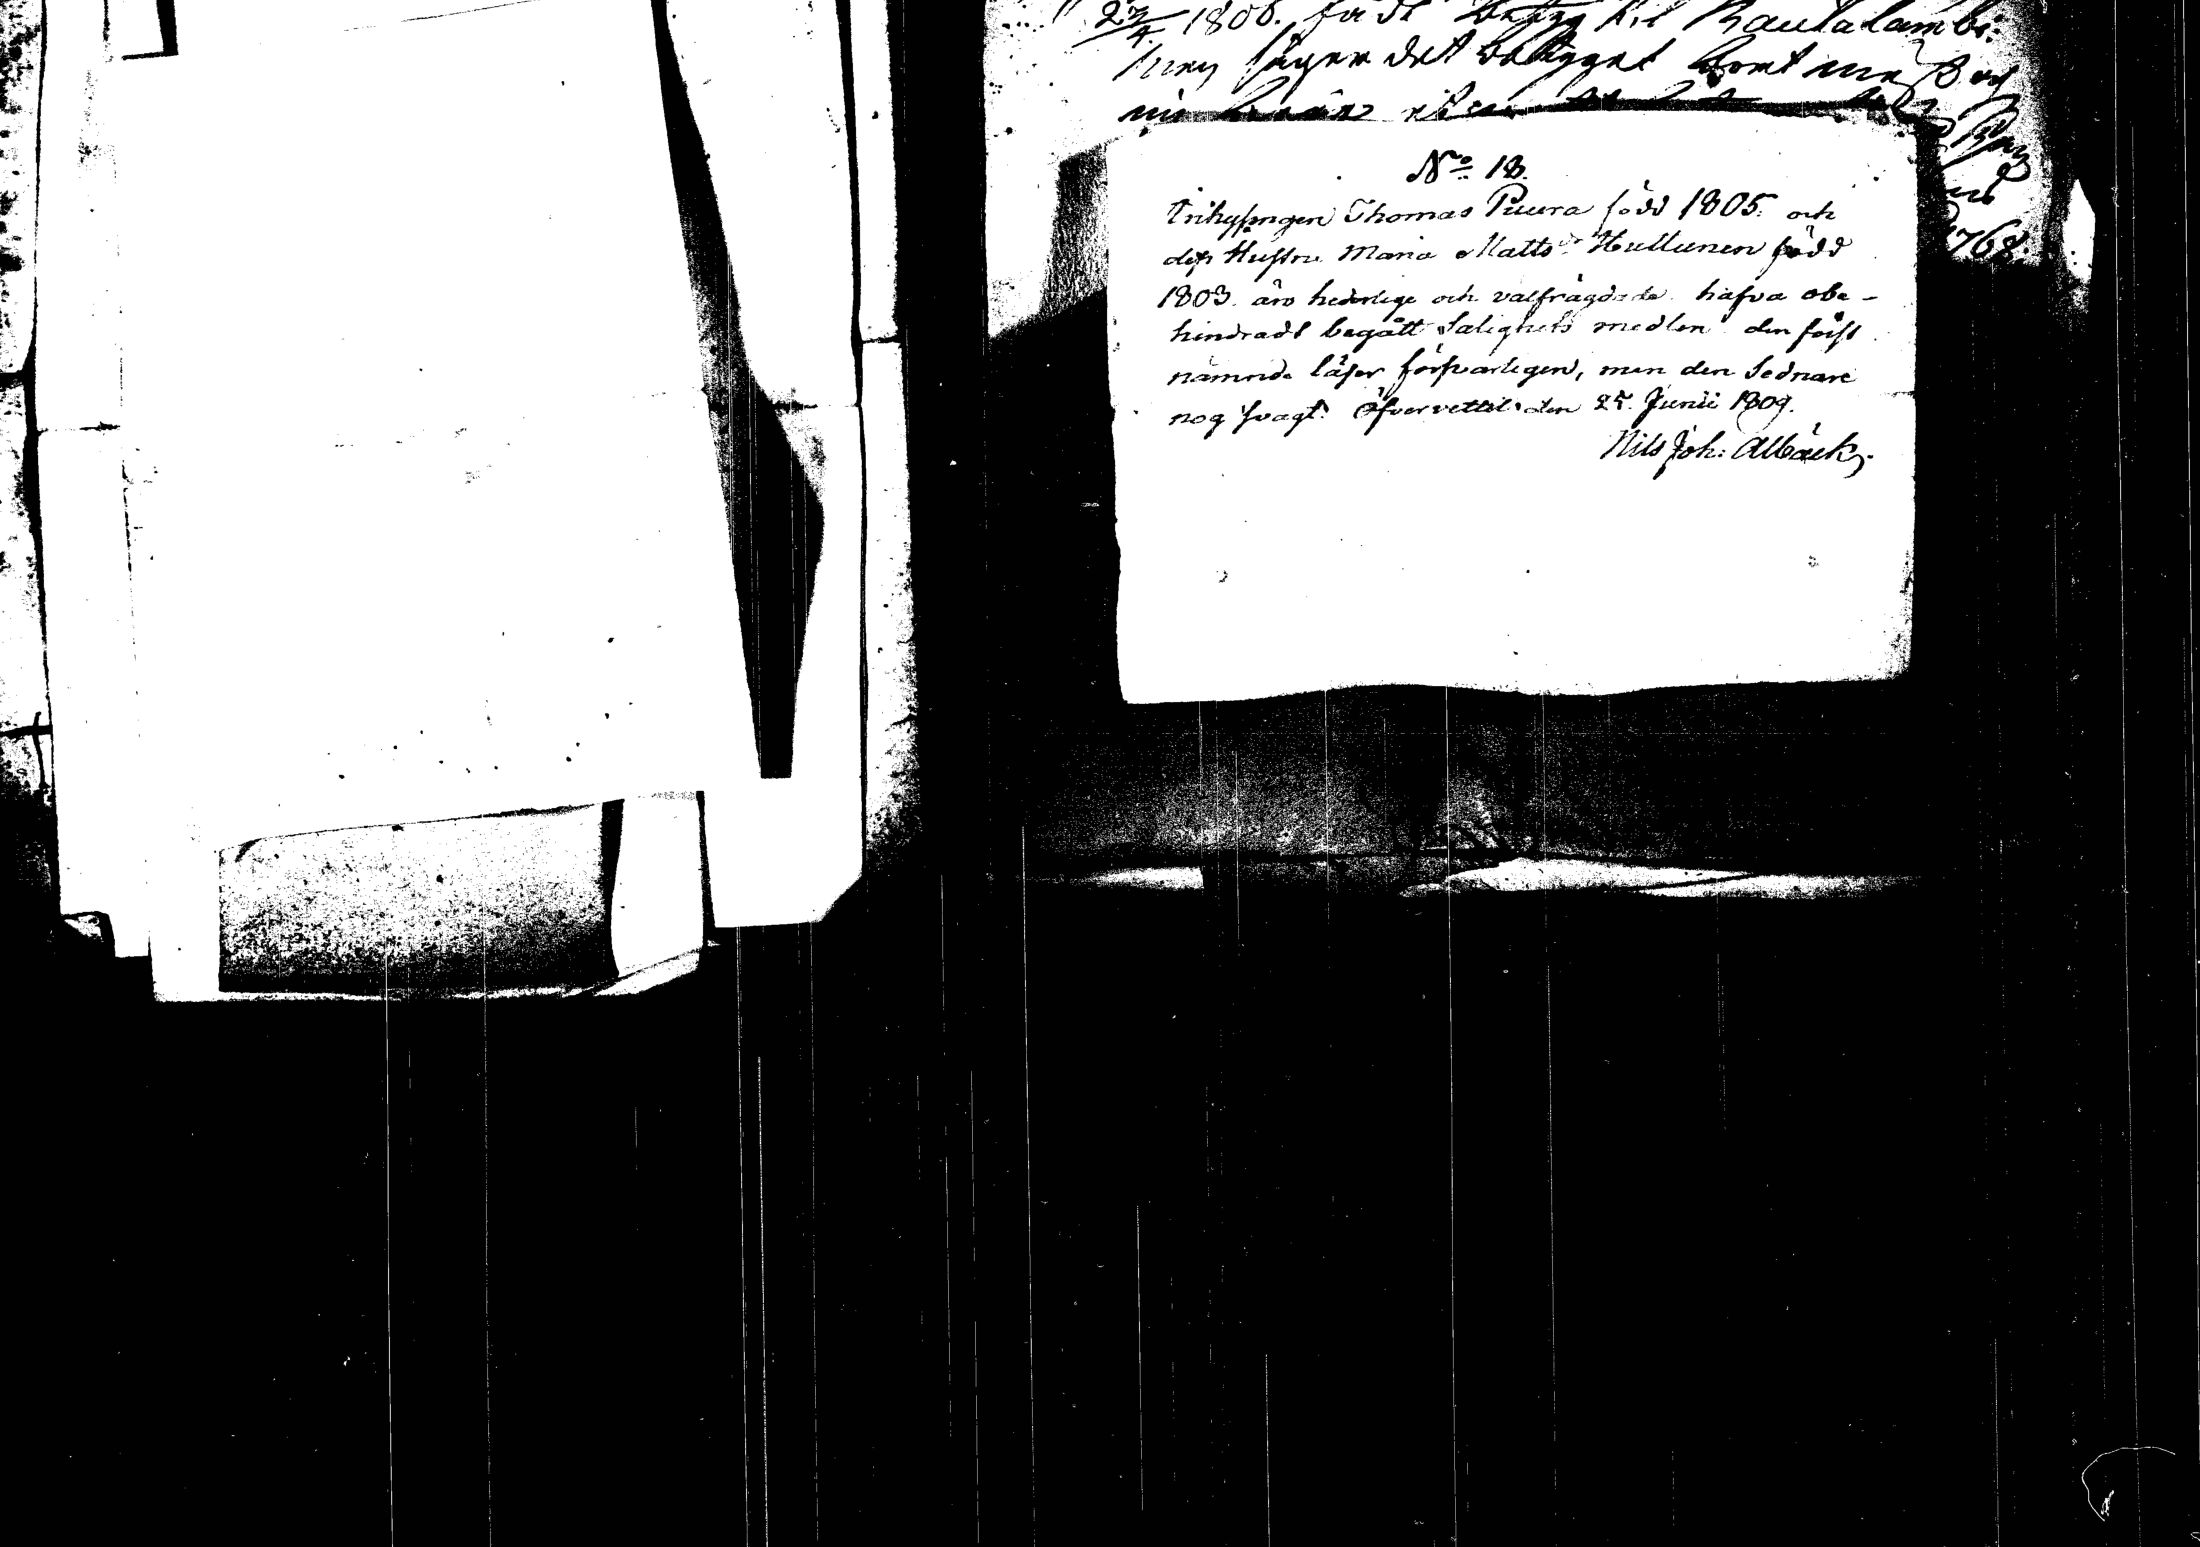 1806. född betyg til Rautalambi.
säger det betyget bort
No 18.
Inhysingen Thomas Puura född 1805. och
dess Hustru Maria Matts dr Hullunen född
1803. äro hederlige och välfrägdade hafva obe-
hindradt begått Salighets medlen den först
nämnde läser försvarligen, men den sednare
nog svagt. Öfvervettil den 25. Junii 1809.
Nils Joh: Albäck
1768.